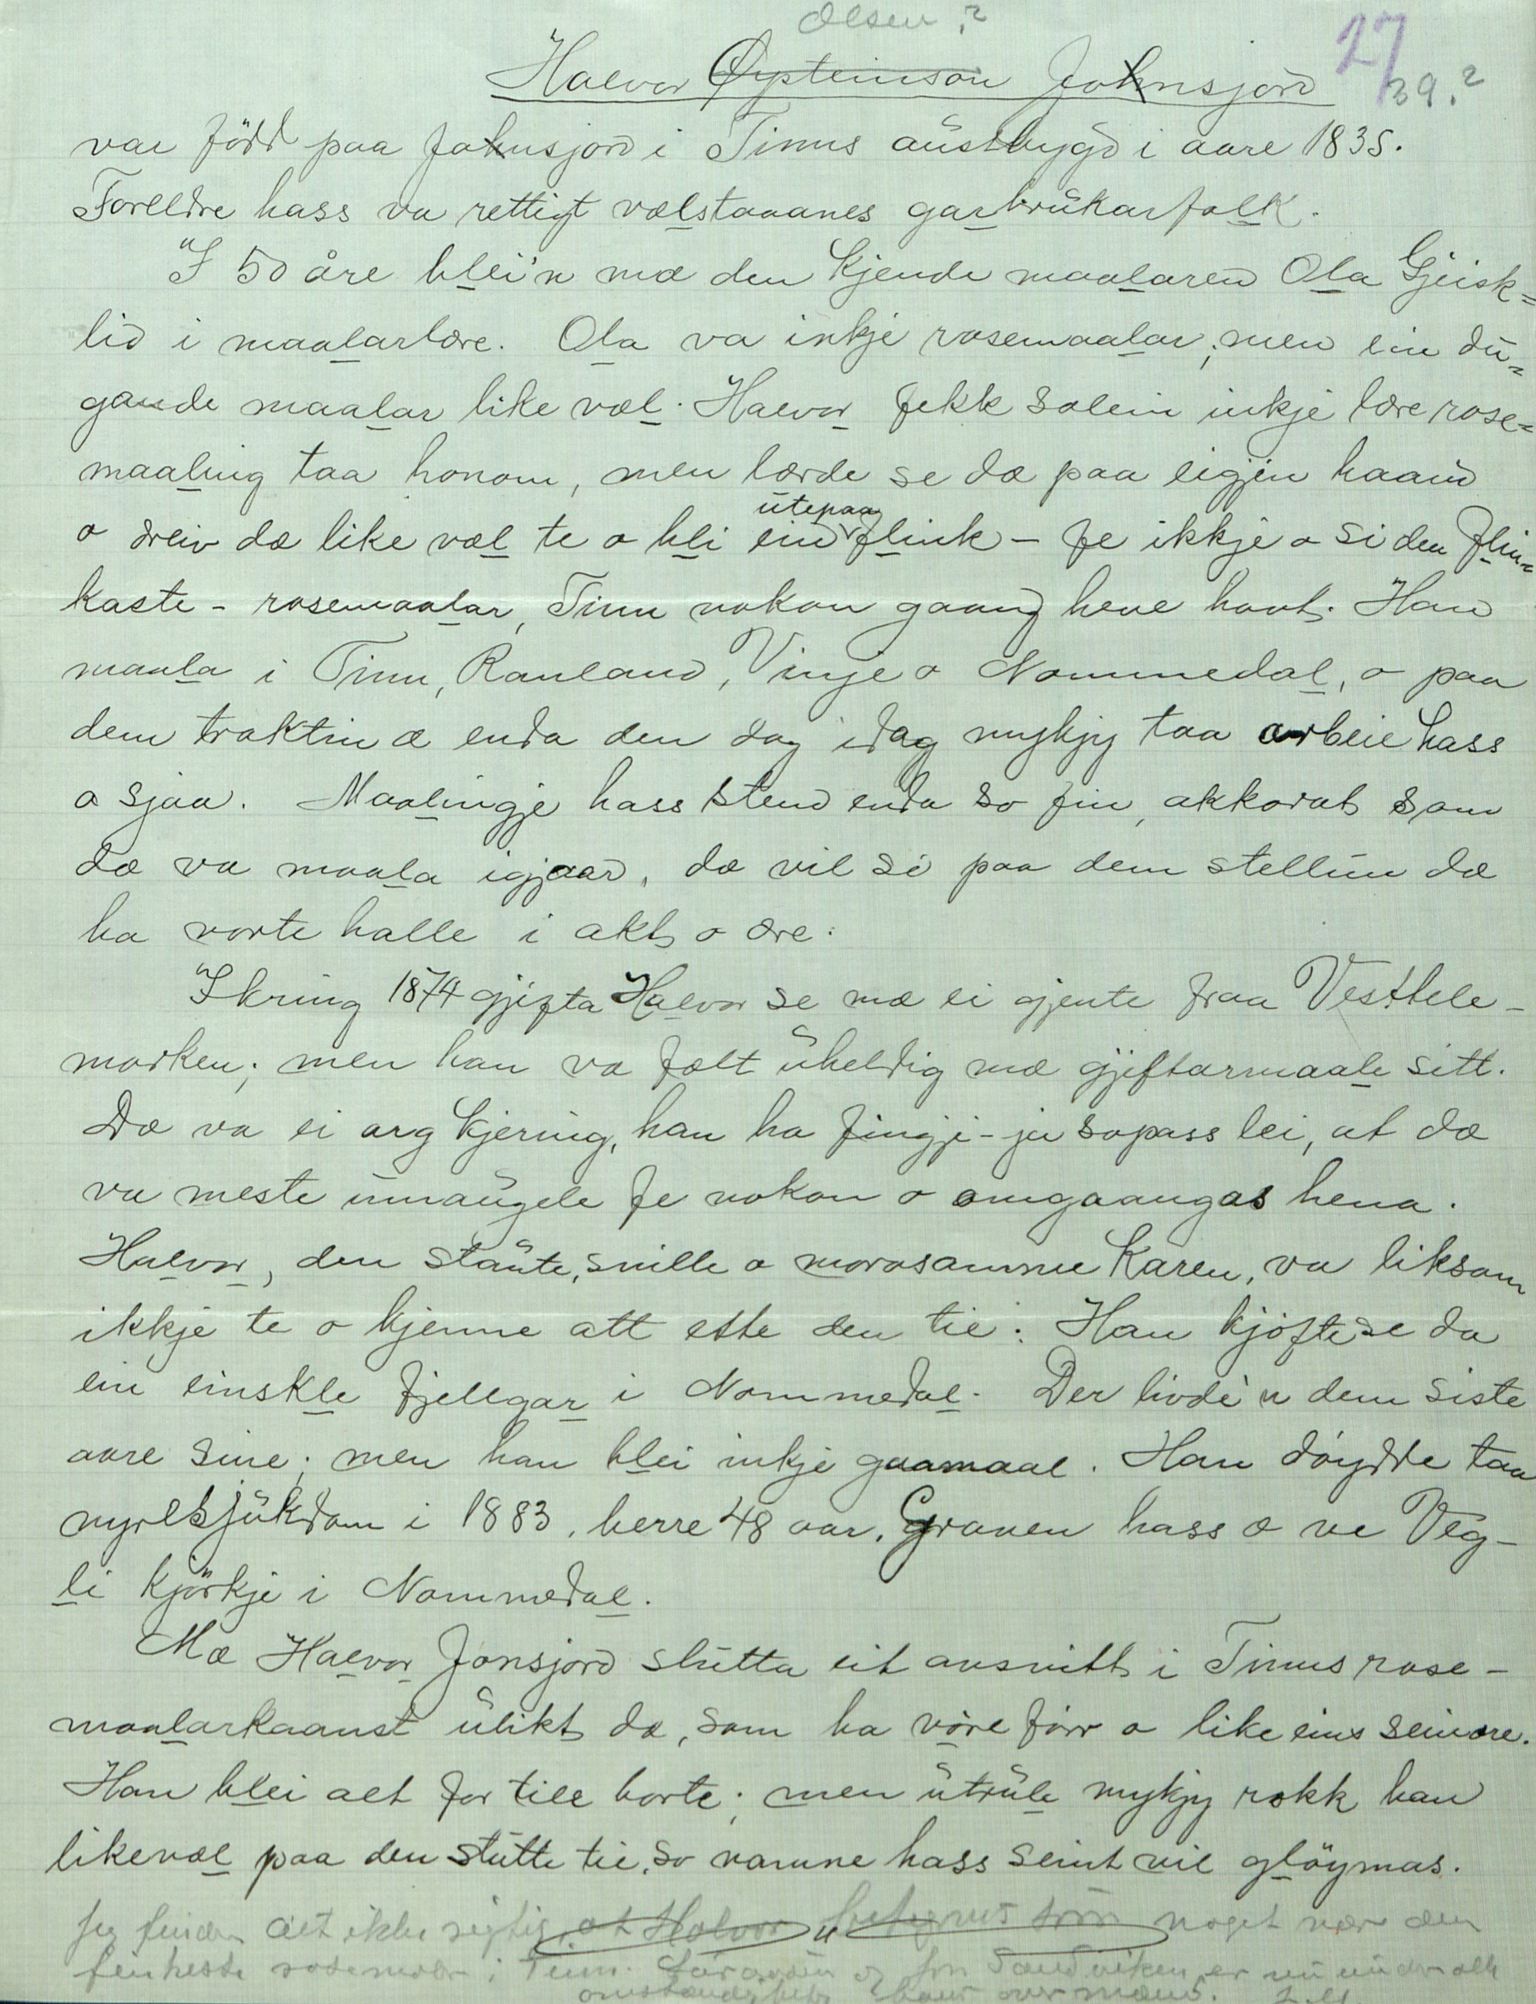 Olsen?
27
Halvor Øysteinson Johnsjord 39.?
var född paa Johnsjord i Tinns austbygd i aare 1835.
Foreldre hass va rettigt vælstaaanes garbrukarfolk.
I 50 åre blei'n mæ den kjende maalaren Ola Gjeisk=
lid i maalarlære. Ola va inkje rosemaalar, men ein du=
gande maalar like væl. Halvor fekk solein inkje lære rose=
maaling taa honom, men lærde se dæ paa eigjen haand
utepaa
o dreiv dæ like væl te o bli ein flink – fe ikkje o si den flin=
kaste – rosemaalar, Tinn nokon gaang heve havt. Han
maala i Tinn, Rauland, Vinje o Nommedal, o paa
dem traktin æ enda den dag idag mykjy taa arbeie hass
o sjaa. Maalingje hass stend enda so fin, akkorat som
dæ va maala igjaar, dæ vil si paa dem stellun dæ
ha vorte halle i akt o ære.
Ikring 1874 gjifta Halvor se mæ ei gjente fraa Vesttele-
marken; men han va fælt uheldig mæ gjiftarmaale sitt.
Dæ va ei arg kjering, han ha fingji – ja sopass lei, at dæ
va meste umaugele fe nokon o omgaangas hena.
Halvor, den staute, snille o morosamme karen, va liksom
ikkje te o kjenne att ette den tie. Han kjöfte se da
ein einskle fjellgar i Nommedal. Der livde'n dem siste
aare sine; men han blei inkje gaamaal. Han döydde taa
nyresjukdom i 1883, berre 48 aar. Graven hass æ ve Veg-
li kjörkje i Nommedal.
Mæ Halvor Jonsjord slutta eit avsnitt i Tinns rose-
maalarkaanst ulikt dæ, som ha vöre förr o like eins seinare.
Han blei alt for till borte; men utrule mykjy rokk han
likevæl paa den stutte tie, so namne hass seint vil glöymas.
Jeg finder det ikke rigtig at Halvor " betegnes som noget nær den
fenheste rosemaler i Tinn. og Jon Sandviken er nu under alle
omstændigheter hans overmænd.